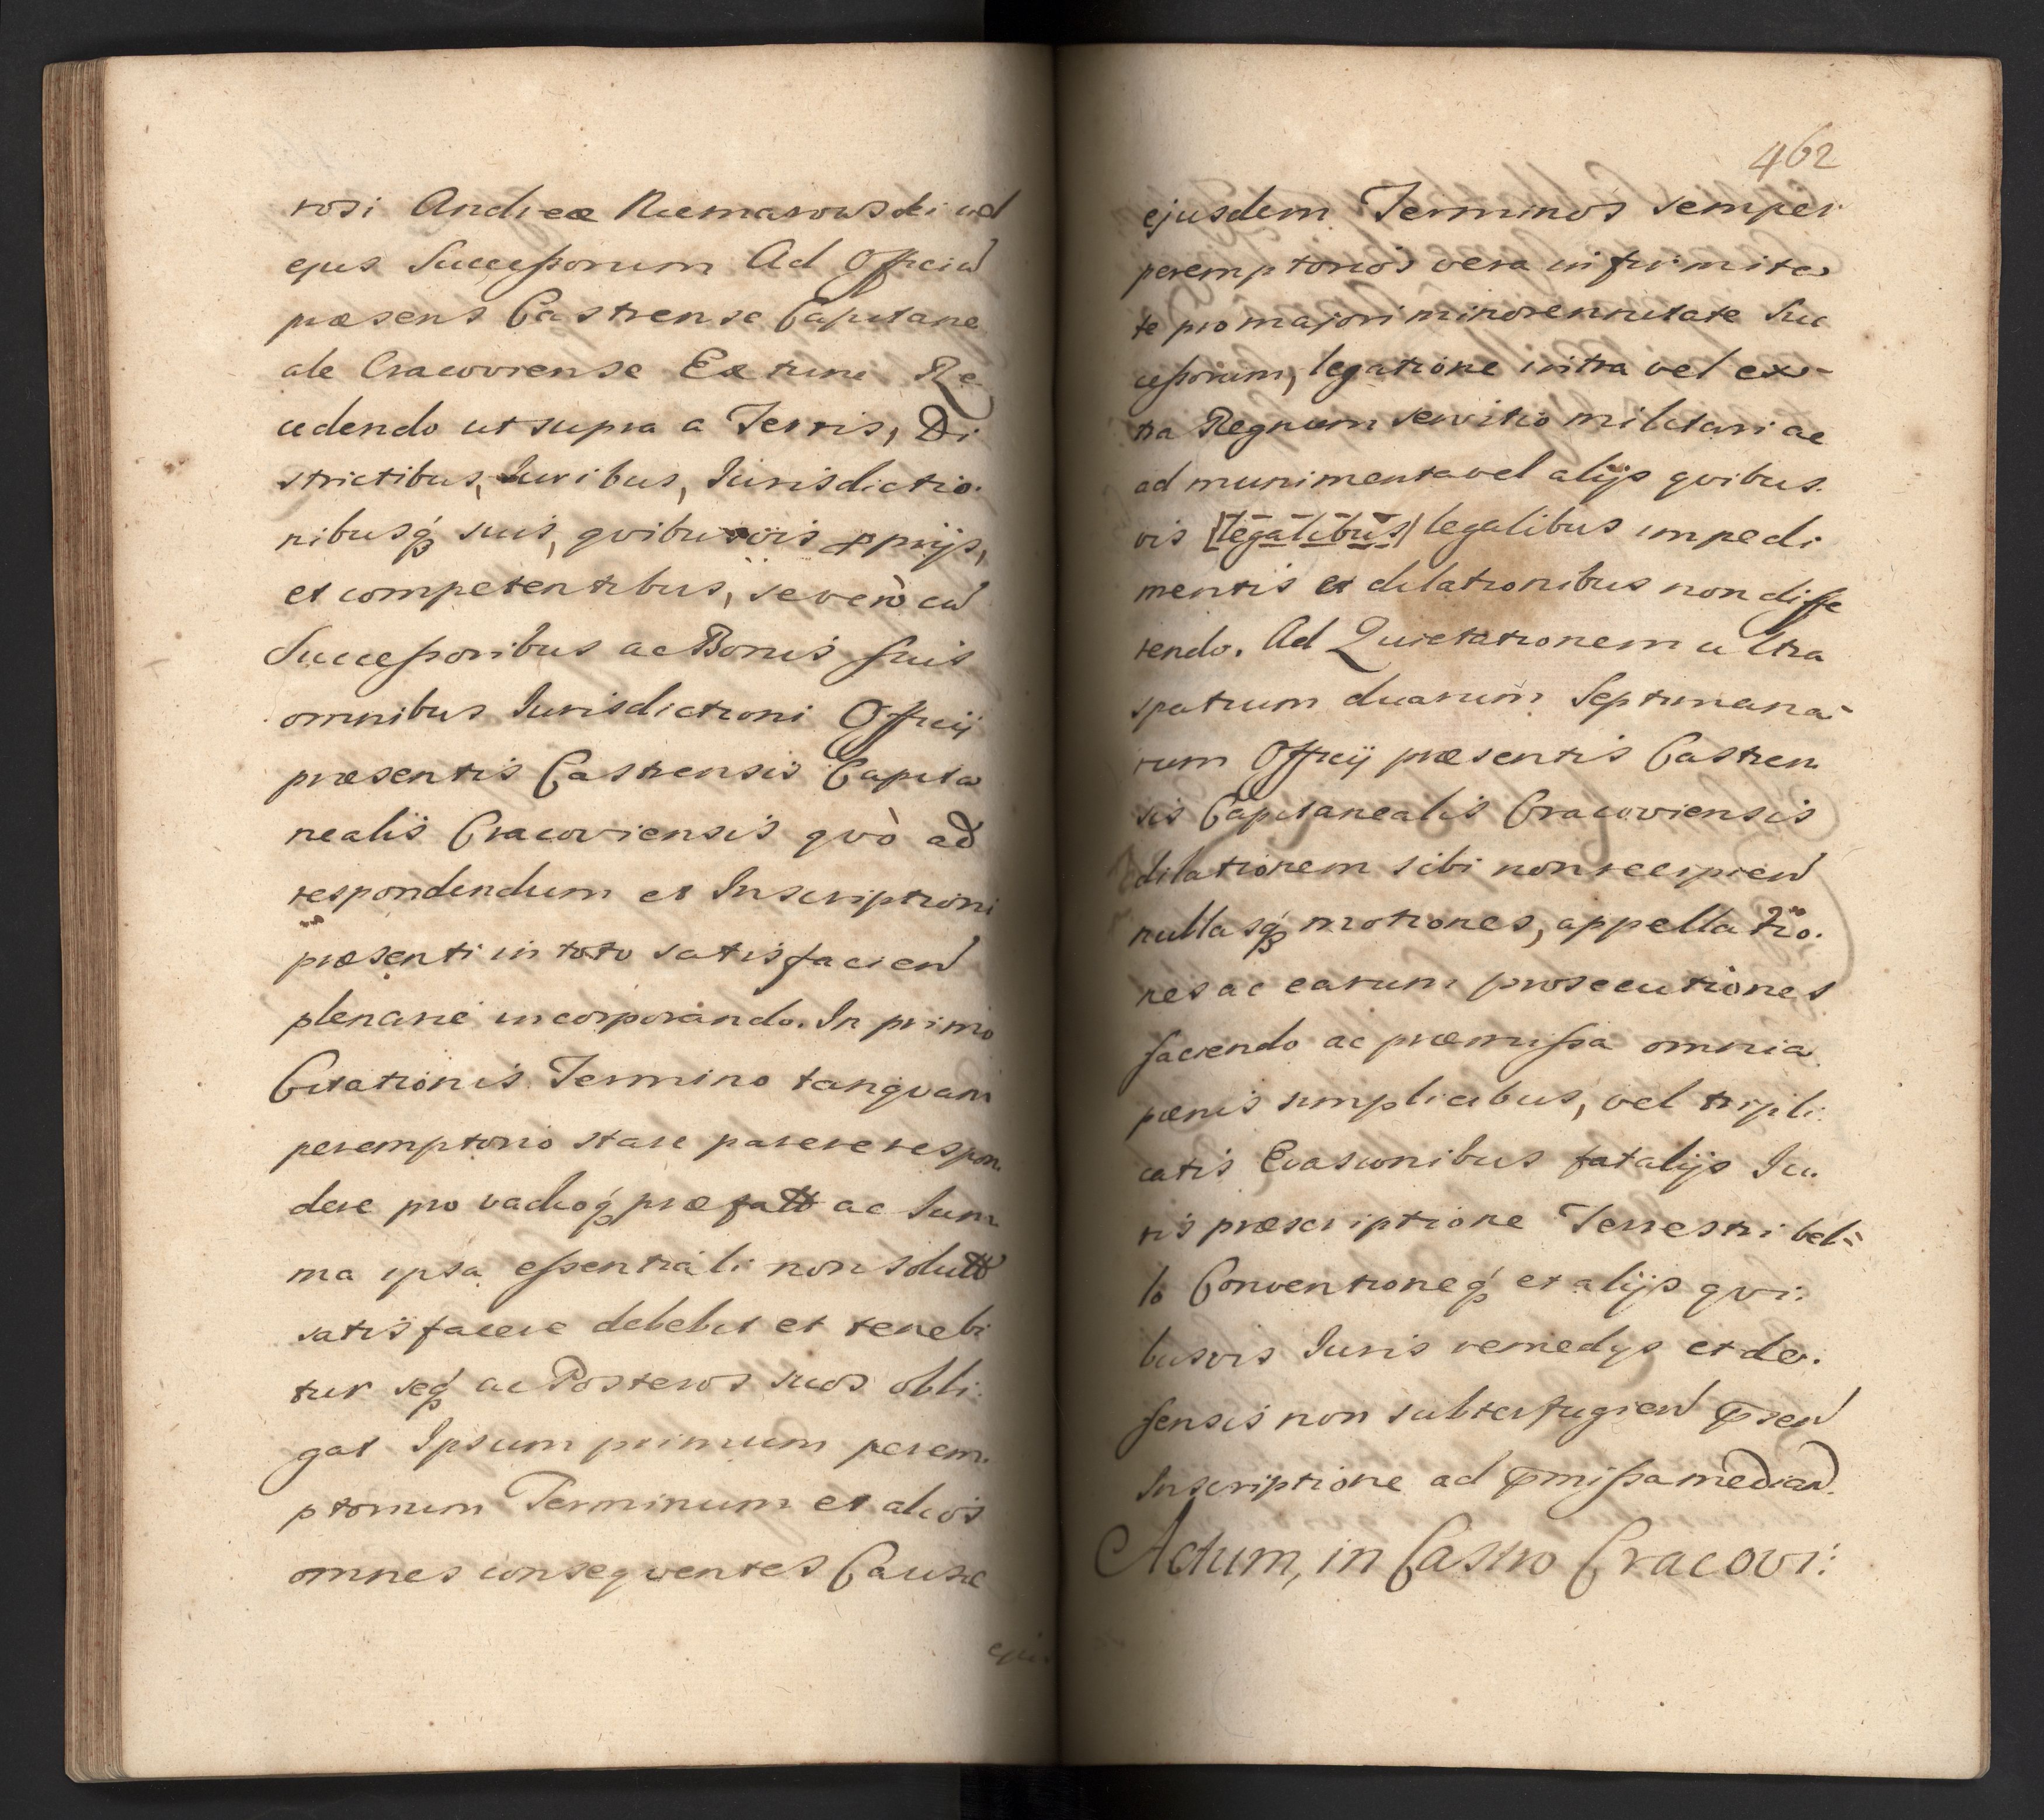 rosi Andreæ Niemarowski vel
ejus Successorum Ad Officiu
præsens Castrense Capitane
ale Cracoviense Ex tunc Re
cedendo ut supra a Terris, Di
strictibus, Iuribus, Iurisdictio.
nibusq́ suis, qvibusvis pprijs,
et competentibus, se verò cu
Successoribus ac Bonis suis
omnibus Iurisdictioni Officij
præsentis Castrensis Capita
nealis Cracoviensis qvò ad
respondendum et Inscriptioni
præsenti in toto satisfacien
plenarie incorporando. In primo
Citationis Termino tanqvam
peremptorio stare parere respon.
dere pro vadioq́ præfatt ac Sum
ma ipsa essentiali non solutt
satisfacere debebit et tenebi
tur seq́ ac Posteros suos obli.
gat Ipsum primum perem.
ptorium Terminum et alios
omnes conseqventes Causæ
ejus
462
ejusdem Terminos semper
peremptorios vera infirmita
te pro majori minorennitate Suc
cessorum, legatione intra vel ex-
tra Regnum servitio militari ac
ad munimenta vel alijs qvibus.
vis [legalibus] legalibus impedi
mentis et dilationibus non diffe
rendo. Ad Quietationem ultra
spatium duarum Septimana-
rum Officij præsentis Castren
sis Capitanealis Cracoviensis
dilationem sibi non recipien
nullasq́ motiones, appellatio.
nes ac earum prosecutiones
faciendo ac præmissa omnia
pænis simplicibus, vel tripli.
catis Evasionibus fatalijs Iu.
ris præscriptione Terrestri bel-
lo Conventioneq́ et alijs qvi:
busvis Iuris remedys et de.
fensis non subterfugien p̄sen
Inscriptione ad p̄missa median.
Actum, in Castro Cracovi: